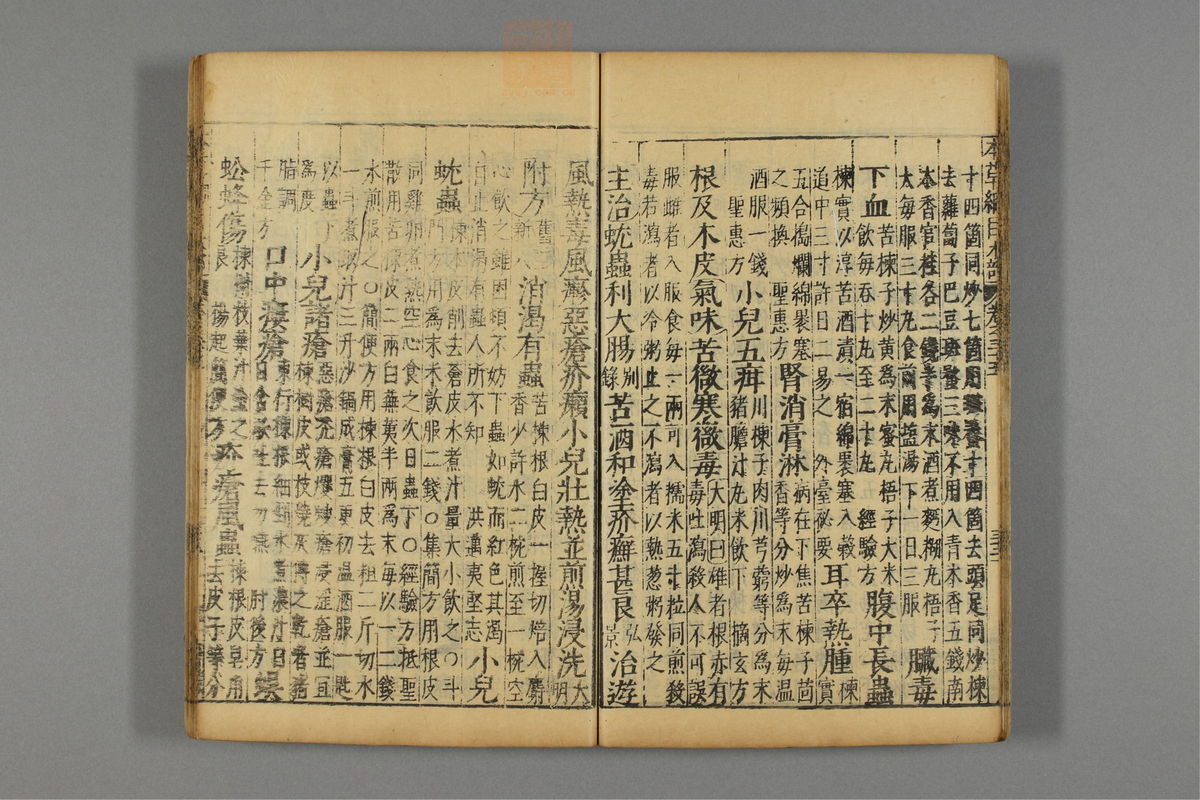 本草綱目木部 卷三十五
十四箇同炒七箇用 十四箇去頭足同炒楝
去蘿蔔子巴豆斑蝥三味不用入青木香五錢南
木香官桂各二錢半爲末酒煮麪糊丸梧子
大每服三十丸食前用鹽湯下一日三服 臟毒
下血苦楝子炒黄爲末蜜丸梧子大米
飲每吞十丸至二十丸 經驗方 腹中長蟲
楝實以淳苦酒漬一宿綿裹塞入穀
道中三寸許日二易之 外臺秘要 耳卒熱腫楝實
五合搗爛綿裹塞
之頻換 聖惠方 腎消膏淋病在下焦苦楝子茴
香等分炒爲末每溫
酒服一錢
聖惠方 小兒五疳川楝子肉川芎藭等分爲末
豬膽汁丸米飲下 摘玄方
根及木皮氣味苦微寒微毒大明曰雄者根赤有
毒吐瀉殺人不可誤
服雌者入服食每一兩可入糯米五十粒同煎殺
毒若瀉者以冷粥止之不瀉者以熱葱粥發之
主治蚘蟲利大腸別錄苦酒和塗疥癬甚良弘景治遊
風熱毒風癮惡瘡疥癩小兒壯熱並煎湯浸洗大明
附方 消渴有蟲苦楝根白皮一握切焙入麝
香少許水二椀煎至一椀空
心飲之雖困頓不妨下蟲如蚘而紅色其渴
自止消渴有蟲人所不知 洪邁夷堅志 小兒
蚘蟲楝木皮削去蒼皮水煮汁量大小飲之○斗
門方用爲末米飲服二錢○集簡方用根皮
同雞卵煮熟空心食之次日蟲下○經驗方抵聖
散用苦楝皮二兩白蕪荑半兩爲末每以一二錢
水煎服之○簡便方用楝根白皮去粗二斤切水
一斗煮取汁三升沙鍋成膏五更初溫酒服一匙
以蟲下
爲度 小兒諸瘡惡瘡禿瘡蠼螋瘡浸淫瘡並宜
楝樹皮或枝燒灰傅之乾者豬
脂調
千金方 口中瘻瘡東行楝根細剉水煮濃汁日
日含漱吐去勿嚥 肘後方 蜈
蚣蜂傷楝樹枝葉汁塗之
良 楊起簡便方 疥瘡風蟲楝根皮皂角
去皮子等分